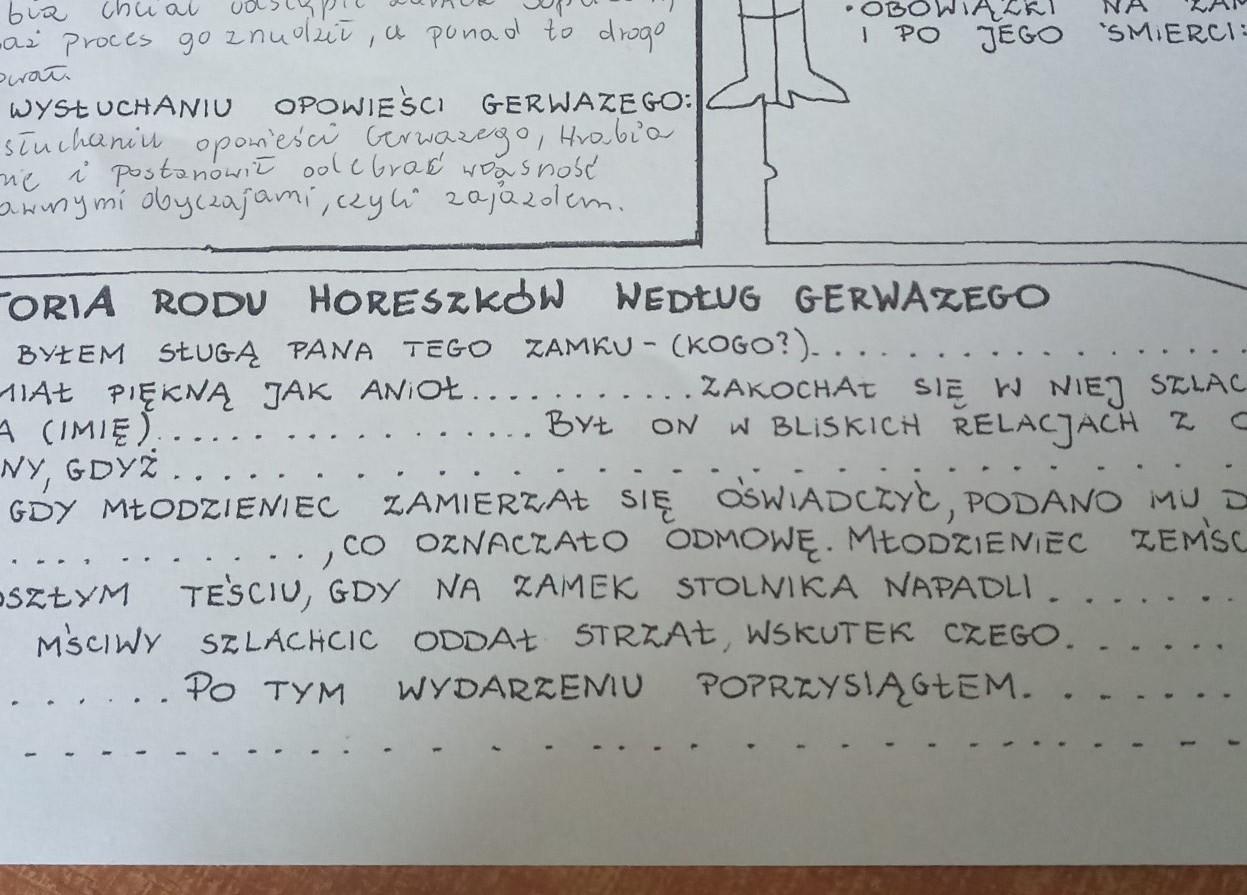 bia chciał odstąpić zamek
aż proces go znudził, a ponad to drogo
ował.
WYSŁUCHANIU OPOWIEŚCI GERWAZEGO:
słuchaniu opowieści Gerwazego, Hrabia
nę i postanowił odebrać własność
awnymi obyczajami, czyli zajazdem.
• OBOWIĄZKI NA ZAM
I PO JEGO ŚMIERCI:
TORIA RODU HORESZKÓW WEDŁUG GERWAZEGO
BYŁEM SŁUGĄ PANA TEGO ZAMKU - (KOGO?)..................
MIAŁ PIĘKNĄ JAK ANIOŁ............ZAKOCHAŁ SIĘ W NIEJ SZLAC
A (IMIĘ)..................BYŁ ON W BLISKICH RELACJACH Z
NY, GDYŻ..............................
GDY MŁODZIENIEC ZAMIERZAŁ SIĘ OŚWIADCZYĆ, PODANO MU D
............, CO OZNACZAŁO ODMOWĘ. MŁODZIENIEC ZEMŚC
OSZŁYM TEŚCIU, GDY NA ZAMEK STOLNIKA NAPADLI.......
MŚCIWY SZLACHCIC ODDAŁ STRZAŁ, WSKUTEK CZEGO.......
.......PO TYM WYDARZENIU POPRZYSIĄGŁEM........
..............................